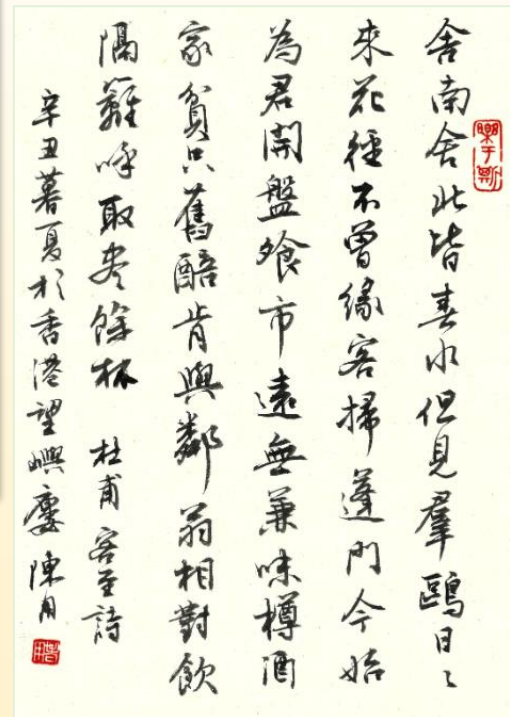 舍南舍北皆春水但見羣鷗日〻
來花徑不曾緣客掃蓬門今始
為君開盤飧市遠無兼味樽酒
家貧只舊醅肯與鄰翁相對飲
隔籬呼取尽餘杯 杜甫 客至詩
辛丑暮夏於香港望嶼廔 陳用